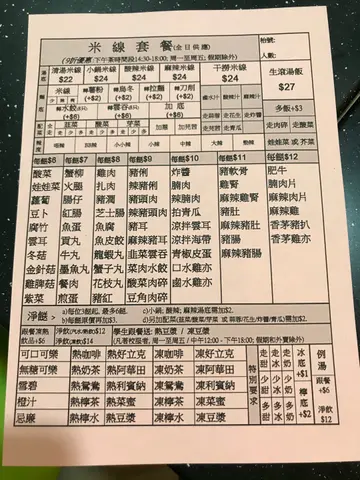 米線套餐(全日供應)
(9折優惠(下午茶時間段14:30-18:00; 周一至周五; 假期除外)
枱號:
人數:
湯底
清湯米線 小鍋米線 酸辣米線 麻辣米線 干撈米線
$22 $24 $24 $24 $24
生滾湯飯
$27
轉米線 轉薯粉 轉烏冬 轉
(+$2) (+$2) (+$2)
滷水汁 酸辣汁 麻辣汁
多飯+$3
轉水餃 轉雲吞
(+$6) (+$6)
走蒜蓉 走花生 走炸醬
走肉碎 走酸菜
配菜 韭菜 酸菜 芽菜
加蔥 加芫茜 走芫茜 走青瓜
娃娃菜 或 芥菜
辣度
每餸$6 每餸$7 每餸$8 每餸$9 每餸$10 每餸$11 每餸$12
酸菜 蟹柳 雞肉 豬俐 炸醬 豬軟骨 肥牛
娃娃菜 火腿 扎肉 辣豬俐 腩肉 雞腎 腩肉片
蘿蔔 腸仔 豬潤 豬頭肉 辣腩肉 麻辣雞腎 麻辣肉片
豆卜 紅腸 芝士腸 辣豬頭肉 拍青瓜 豬肚 麻辣雞
腐竹 魚蛋 魚腐 豬耳 涼拌雲耳 麻辣豬肚 香茅豬扒
雲耳 貢丸 魚皮餃 麻辣豬耳 涼拌海帶 豬腸 香茅雞扒
冬菇 牛丸 龍蝦丸 韭菜雲吞 青椒皮蛋 麻辣豬腸
金針菇 墨魚丸 蟹子丸 菜肉水餃 口水雞亦
雞脾菇 餐肉 花枝丸 酸菜魚片 鹵水雞亦
紫菜 煎蛋 豬紅 豆角肉碎
淨餸>
a)每位3餸起, 最多6餸. c)小鍋; 酸辣; 麻辣湯底需加$2.
b)每餸跟價再加$3.
跟餐凍熱飲品+$6
淨飲(汽水/熱飲)$12
淨飲(凍飲)$14
學生跟餐送: 熱豆漿 / 凍豆漿
可口可樂 熱咖啡 熱好立克 凍咖啡 凍好立克
無糖可樂 熱奶茶 熱阿華田 凍奶茶 凍阿華田
雪碧 熱鴛鴦 熱利賓納 凍鴛鴦 凍利賓納
橙汁 熱檸茶 熱菜蜜 凍檸茶 凍菜蜜
忌廉 熱檸水 熱豆漿 凍檸水 凍豆漿
特別要
走甜 走奶 走冰
少甜 少奶 少冰
多甜 多奶 多冰
冰底+$1
檸底+$2
例湯
跟餐+$6
淨飲$12